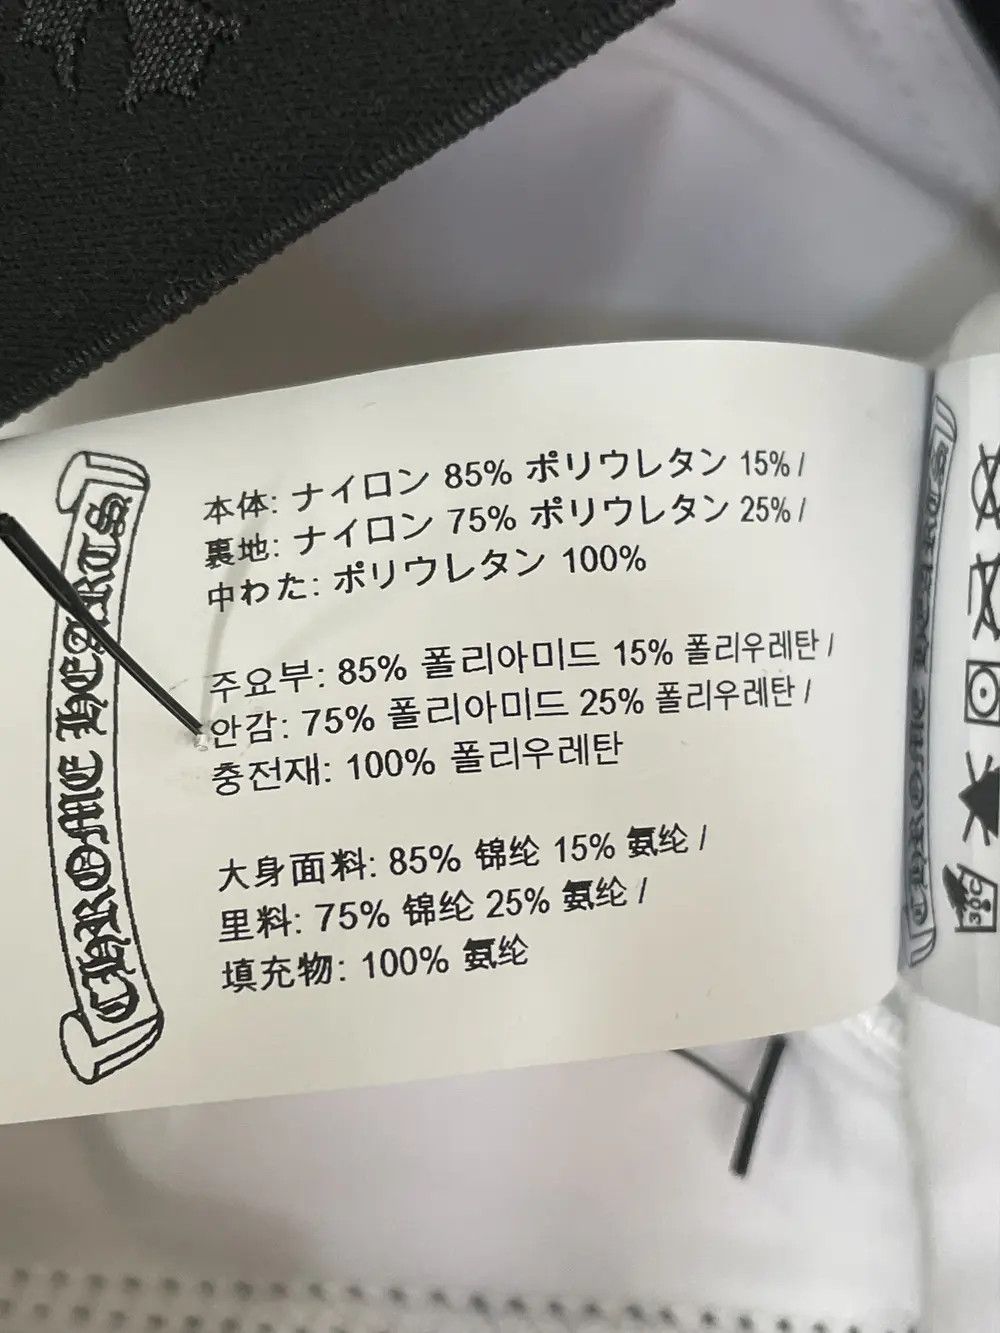 CHROME HEARTS
本体: ナイロン 85% ポリウレタン 15% /
裏地: ナイロン 75% ポリウレタン 25% /
中わた: ポリウレタン 100%
주요부: 85% 폴리아미드 15% 폴리우레탄 /
안감: 75% 폴리아미드 25% 폴리우레탄 /
충전재: 100% 폴리우레탄
大身面料: 85% 锦纶 15% 氨纶 /
里料: 75% 锦纶 25% 氨纶 /
填充物: 100% 氨纶
CHROME HEARTS
30C